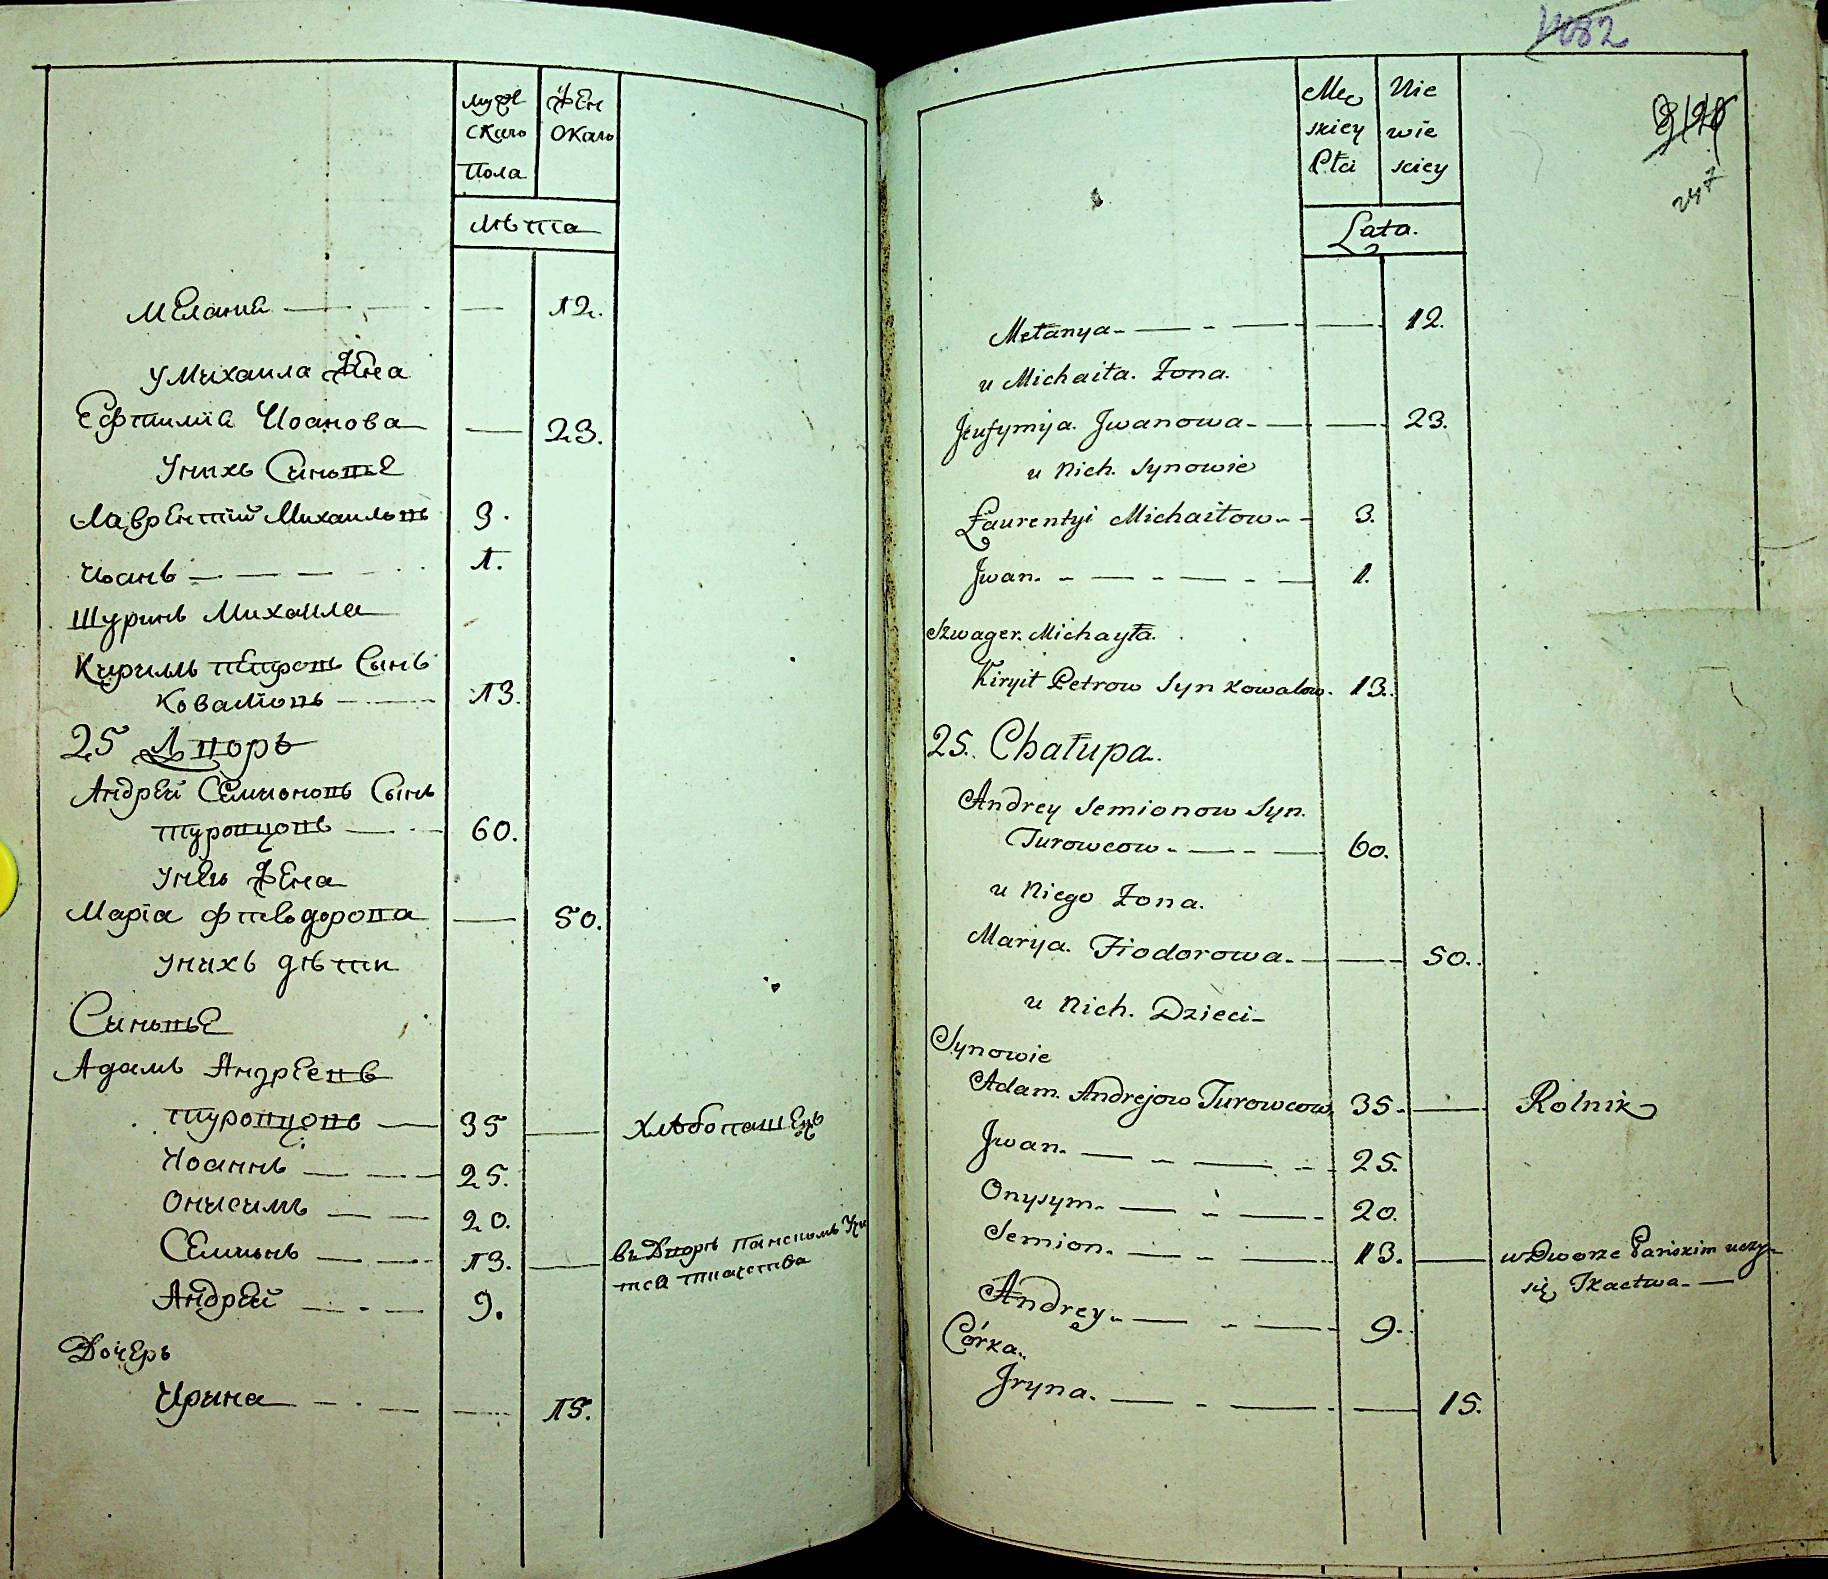 муже
скаго
пола
жен
скаго
лѣта
Меланиа — — — — 12.
у Михаила Жена
Ефтиміа Иоанова — — 23.
у нихъ Синовье
Лаврентій Михаиловъ 3.
Иоанъ — — — — 1.
Шуринъ Михаила
Кирилъ петровъ Сынъ
Ковалiовъ — — 13.
25 Дворъ
Андрей Семионовъ Сынъ
туровцовъ — — 60.
у нево Жена
Маріа фтеодорова — 50.
у нихъ дѣти
Синовье
Адамъ Андреевъ
туровцовъ — 35 — хлѣбопашецъ
Иоаннъ — — 25.
Онисимъ — — 20.
Семионъ — — 13. — въ Дворѣ панскомъ Учи
тса ткаства
Андрей — — 9.
Дочерь
Ирина — — — — 15.
1082
Mez
skiey
Płci
Nie
wie
sciey
Lata.
247
Mełanya — — — — 12.
u Michaiła. Żona.
Jeufymija. Jwanowa — — 23.
u Nich. Synowie
Łaurentyi Michaiłow — 3.
Jwan. — — — — 1.
Szwager. Michayła.
Kirył Petrow Syn Kowalow. 13.
25. Chałupa.
Andrey Semionow Syn.
Turowcow — — 60.
u Niego Żona.
Marya. Fiodorowa — — 50.
u Nich. Dzieci
Synowie
Adam. Andrejow Turowcow 35 — Rolnik
Jwan. — — — — 25.
Onysym. — — — 20.
Semion. — — — 13. — w Dworze Pańskim uczy
się Tkactwa —
Andrey — — — 9.
Córka.
Jryna. — — — — 15.